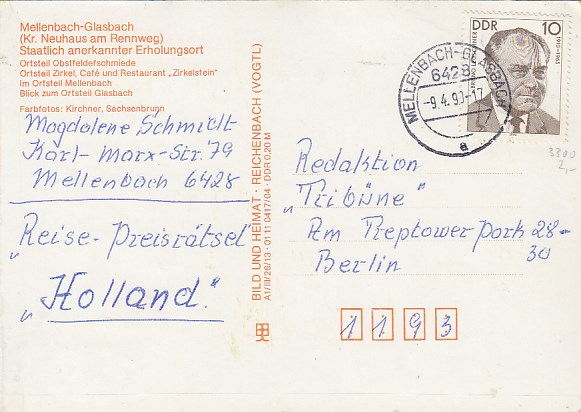 Mellenbach-Glasbach
(Kr. Neuhaus am Rennweg)
Staatlich anerkannter Erholungsort
Ortsteil Obstfelderschmiede
Ortsteil Zirkel, Café und Restaurant „Zirkelstein"
im Ortsteil Mellenbach
Blick zum Ortsteil Glasbach
Farbfotos: Kirchner, Sachsenbrunn
Magdalene Schmidt
Karl-Marx-Str. 79
Mellenbach 6428
„Reise-Preisrätsel"
„Holland."
BILD UND HEIMAT · REICHENBACH (VOGTL)
A1/III/26/13 · 01 11 0417/04 · DDR 0,20 M
MELLENBACH-GLASBACH
6428
-9.4.90-17
a
DDR 10
1910-1965
3300
2,-
Redaktion
„Tribüne"
Am Treptower park 28-
30
Berlin
1193